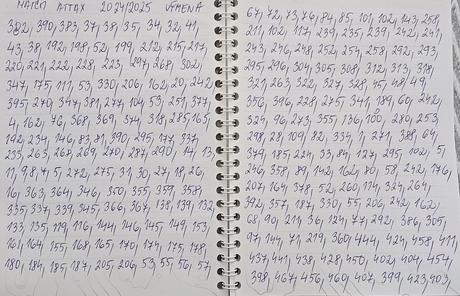 MATCH ATTAX 2024/2025 VÝMENA
382, 390, 383, 37, 38, 35, 34, 32, 41,
43, 38, 192, 198, 52, 199, 212, 215, 217,
220, 221, 222, 228, 223, 297, 268, 302,
347, 175, 111, 53, 330, 206, 162, 20, 242,
395, 270, 347, 381, 277, 104, 53, 251, 377,
4, 162, 76, 368, 369, 374, 318, 285, 165,
192, 234, 146, 83, 81, 390, 295, 177, 337,
233, 263, 268, 269, 270, 287, 290, 14, 13,
11, 9, 8, 45, 272, 275, 31, 30, 27, 18, 26,
16, 363, 364, 346, 350, 355, 359, 358,
335, 337, 339, 345, 366, 367, 138, 139, 132,
133, 135, 119, 116, 144, 146, 145, 149, 153,
161, 164, 155, 168, 165, 170, 174, 175, 178,
180, 184, 185, 187, 205, 206, 53, 55, 56, 57,
67, 72, 73, 76, 84, 85, 101, 102, 143, 258,
211, 102, 117, 239, 235, 239, 242, 241,
243, 246, 248, 252, 254, 258, 292, 293,
295, 296, 304, 305, 308, 312, 313, 318,
321, 263, 322, 327, 328, 45, 48, 49,
356, 396, 228, 275, 341, 189, 60, 242,
324, 96, 273, 355, 136, 100, 280, 253,
298, 28, 109, 82, 334, 1, 271, 388, 64,
379, 185, 224, 33, 84, 127, 295, 102, 5,
246, 358, 89, 142, 162, 80, 58, 242, 176,
207, 164, 378, 52, 260, 114, 324, 264,
392, 357, 187, 330, 55, 206, 242, 162,
68, 90, 211, 36, 124, 77, 292, 386, 305,
97, 144, 71, 219, 360, 444, 424, 458, 411,
437, 441, 438, 428, 450, 402, 404, 454,
398, 467, 456, 460, 407, 399, 423, 403,